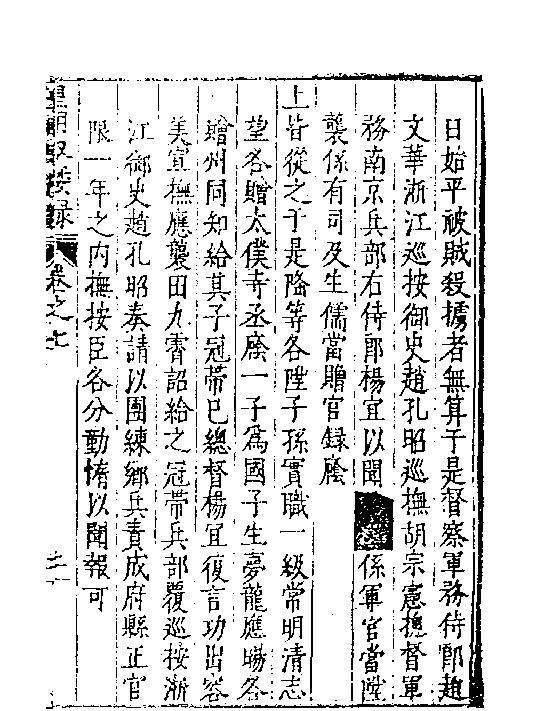 日始平被賊殺擄者無算于是督察軍務侍郎趙
文華浙江巡按御史趙孔昭巡撫胡宗憲摠督軍
務南京兵部右侍郎楊宜以聞係軍官當陞
襲係有司及生儒當贈官録廕
上皆從之于是隆等各陞子孫實職一級常明清志
望各贈太僕寺丞廕一子爲國子生夢龍應暘各
贈州同知給其子冠帶已總督楊宜復言功出容
美宣撫應襲田九霄詔給之冠帶兵部覆巡按浙
江御史趙孔昭奏請以團練鄉兵責成府縣正官
限一年之内撫按臣各分勤惰以聞報可
皇明馭倭録
卷之七